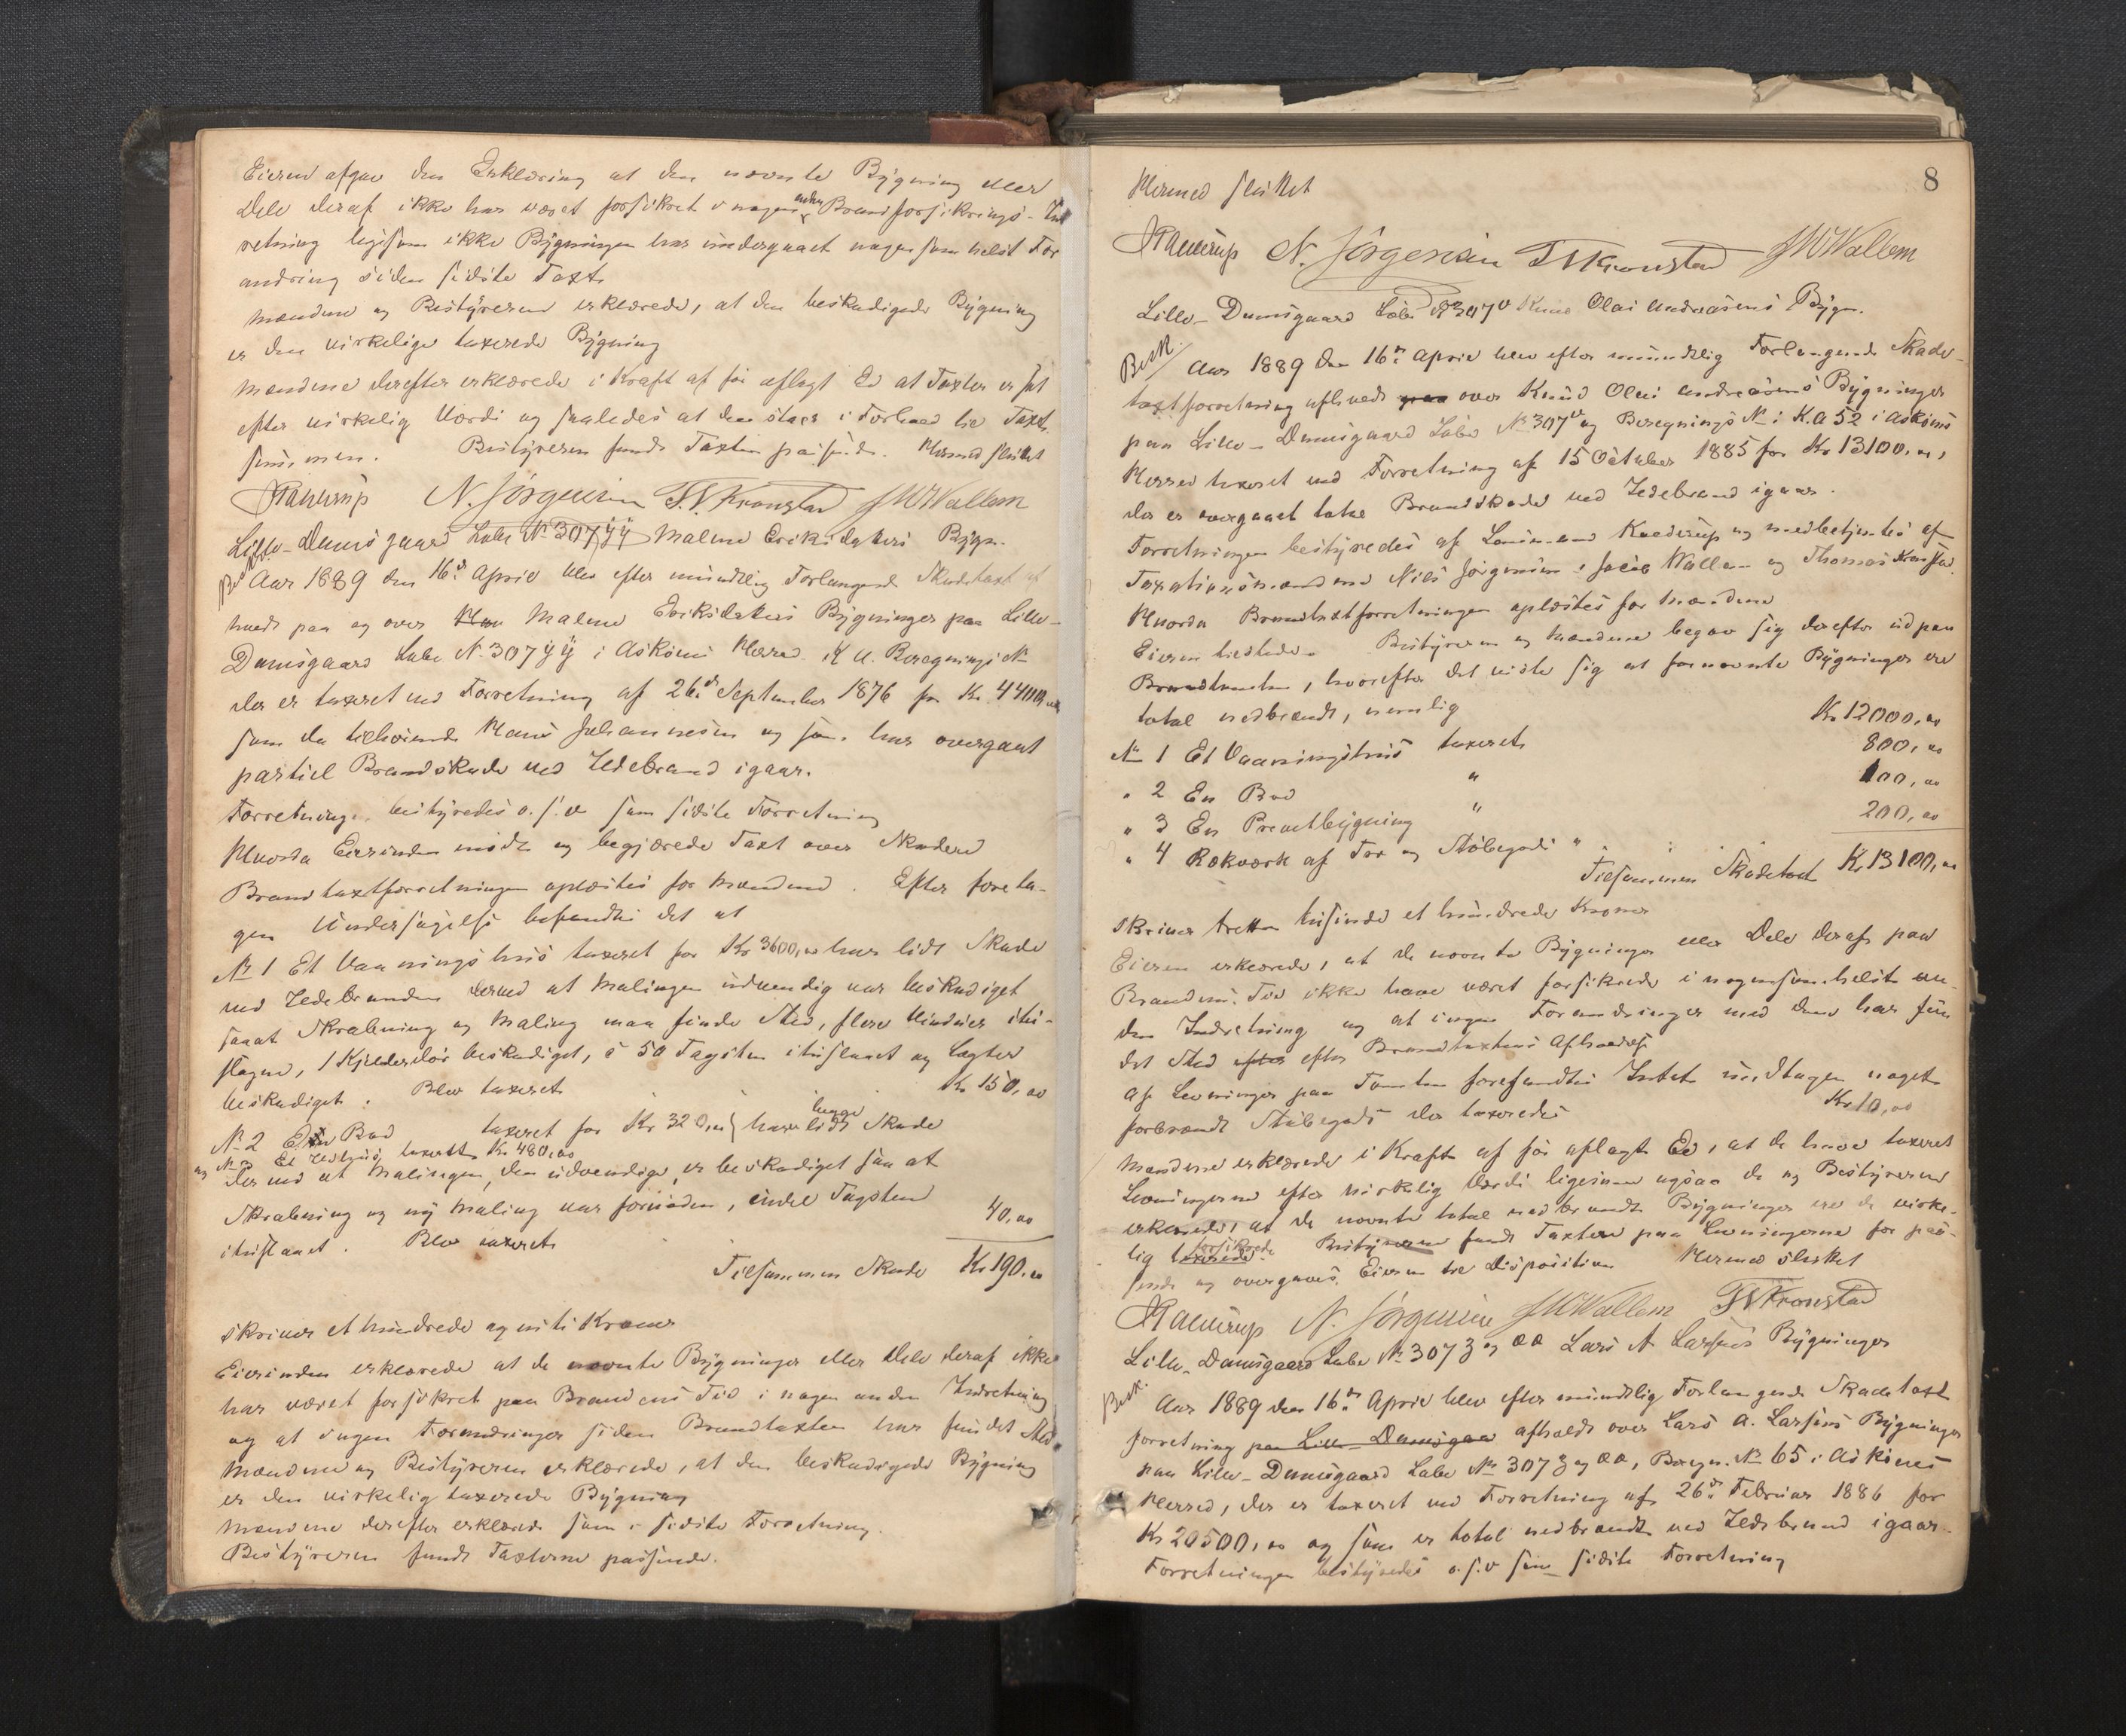 Eieren afgav den Erklæring at den nævnte Bygning eller
Dele deraf ikke har været forsikret i nogen anden Brandforsikrings-Ind
retning ligesom ikke Bygningen har undergaaet nogen som helst For
andring siden sidste Taxt.
Mændene og Bestyreren erklærede, at den beskadigede Bygning
er den virkelige taxerede Bygning
Mændene derefter erklærede i Kraft af før aflagt Ed at Taxten er sat
efter virkelig Værdi og saaledes at den staar i Forhold til Taxt-
summen. Bestyreren fandt Taxten passende. Hermed sluttet
N. Jørgensen T. V. Kronstad J W Wallem
Lille-Damsgaard Løbe No 307 ÿÿ Maline Eriksdatters Bygn.
Aar 1889 den 16de April blev efter mundtlig Forlangende Skadetaxt af
holdt paa og over Maline Eriksdatters Bygninger paa Lille-
Damsgaard Løbe No 307 ÿÿ i Askøens Herred K A. Beregnings No
der er taxeret ved Forretning af 26de September 1876 for Kr. 4400,00
som da tilhørende Hans Johannesen og som har overgaaet
partiel Brandskade ved Ildebrand igaar.
Forretningen bestyredes o.s.v som sidste Forretning
Hvorda Eierinden mødte og begjærede Taxt over Skaden
Brandtaxtforretningen oplæstes for Mændene. Efter foreta-
gen Undersøgelse befandtes det at
No 1 Et Vaaningshus taxeret for Kr 3600,00 har lidt Skade
ved Ildebranden derved at Malingen udvendig var beskadiget
saaat Skrabning og Maling maa finde Sted, flere Vinduer itu-
slagne, 1 Kjelderdør beskadiget, á 50 Tagsten ituslaaet og Lægter
beskadiget. Blev taxeret Kr 150,00
No 2 En Bod taxeret for Kr 320,00 } have begge lidt Skade
og No 3 Et Ildhus taxeret Kr 480,00
derved at Malingen, den udvendige, er beskadiget saa at
Skrabning og ny Maling var fornøden, endel Tagsten
ituslaaet. Blev taxeret 40,00
Tilsammen Skade Kr 190,00
skriver et hundrede og niti Kroner
Eierinden erklærede at de nævnte Bygninger eller Dele deraf ikke
har været forsikret paa Brandens Tid i nogen anden Indretning
og at ingen Forandringer siden Brandtaxten har fundet Sted.
Mændene og Bestyreren erklærede, at den beskadigede Bygning
er den virkelig taxerede Bygning
Mændene derefter erklærede som i sidste Forretning.
Bestyreren fandt Taxterne passende.
8
Hermed sluttet
N. Jørgensen T V Kronstad J W Wallem
Lille-Damsgaard Løbe No 307 v Knud Olai Andreasens Bygn.
Besk. Aar 1889 den 16de April blev efter mundtlig Forlangende Skade-
taxtforretning afholdt paa over Knud Olai Andreasens Bygninger
paa Lille-Damsgaard Løbe No 307 v og Beregnings No i K.A 52 i Askøens
Herred taxeret ved Forretning af 15 October 1885 for Kr 13100,00,
der er overgaaet total Brandskade ved Ildebrand igaar.
Forretningen bestyredes af Lensmand og medbetjentes af
Taxationsmændene Nils Jørgensen, Jacob Wallem og Thomas Kronstad.
Hvorda Brandtaxtforretningen oplæstes for Mændene
Eieren tilstede. Bestyreren og Mændene begav sig derefter ud paa
Brandtomten, hvorefter det viste sig at fornævnte Bygninger ere
total nedbrændt, nemlig
No 1 Et Vaaningshus taxeret Kr 12000,00
" 2 En Bod " 800,00
" 3 En Privetbygning " 100,00
" 4 Rækværk af Træ og Støbegods " 200,00
Tilsammen Skadetaxt Kr 13100,00
skriver tretten tusinde et hundrede Kroner
Eieren erklærede, at de nævnte Bygninger eller Dele deraf paa
Brandens Tid ikke have været forsikrede i nogensomhelst an-
den Indretning og at ingen Forandringer med dem har fun
det Sted efter efter Brandtaxtens Afholdelse
Af Levninger paa Tomten forefandtes Intet undtagen noget
forbrændt Støbegods der taxeredes Kr 10,00
Mændene erklærede i Kraft af før aflagt Ed, at de have taxeret
Levningerne efter virkelig Værdi ligesom ogsaa de og Bestyreren
erklærede, at de nævnte total nedbrændte Bygninger ere de virke-
lig taxerede forsikrede. Bestyreren fandt Taxten paa Levningerne for pas-
sende og overgaves Eieren til Disposition Hermed sluttet
N. Jørgensen J W Wallem T V Kronstad
Lille-Damsgaard Løbe No 307 z og ææ Lars A Larsens Bygninger
Besk. Aar 1889 den 16de April blev efter mundtlig Forlangende Skadetaxt
forretning paa Lille-Damsgaa afholdt over Lars A. Larsens Bygninger
paa Lille-Damsgaard Løbe No 307 z og ææ, Beregn. No 65 i Askøens
Herred, der er taxeret ved Forretning af 26de Februar 1886 for
Kr 20500,00 og som er total nedbrændt ved Ildebrand igaar.
Forretningen bestyredes o.s.v som sidste Forretning